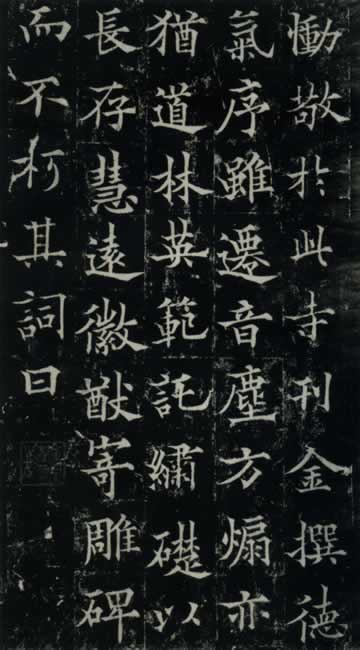 慟敬於此寺刊金撰德
氣序雖遷音塵方煽亦
猶道林英範託繡礎以
長存慧遠徽猷寄雕碑
而不朽其詞曰